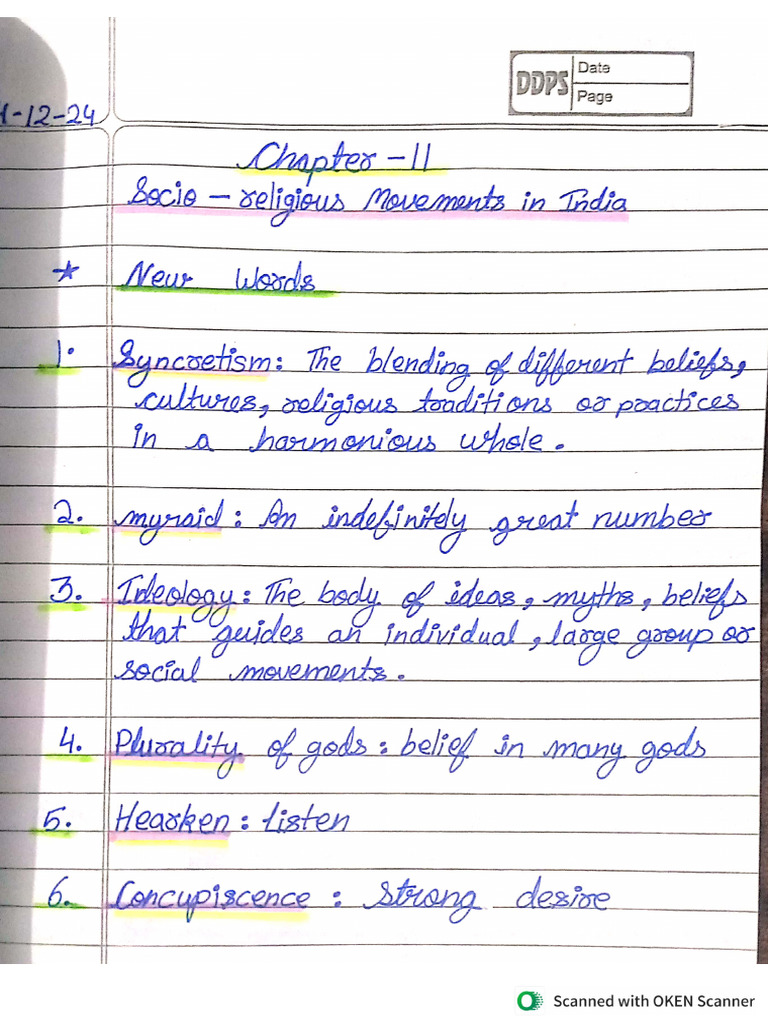 DDPS Date
Page
1-12-24
Chapter - 11
Socio - religious Movements in India
* New Words
1. Syncretism: The blending of different beliefs,
cultures, religious traditions or practices
in a harmonious whole.
2. myraid: An indefinitely great number
3. Ideology: The body of ideas, myths, beliefs
that guides an individual, large group or
social movements.
4. Plurality of gods: belief in many gods
5. Hearken: Listen
6. Concupiscence: strong desire
Scanned with OKEN Scanner